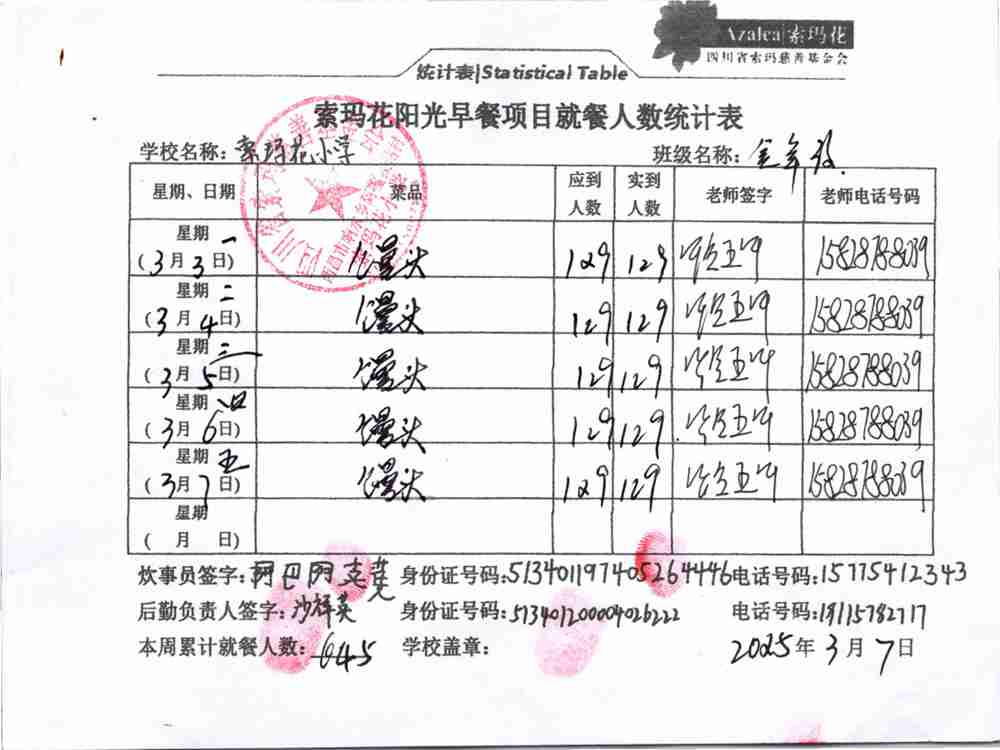 Azalea 索玛花
四川省索玛慈善基金会
统计表|Statistical Table
索玛花阳光早餐项目就餐人数统计表
学校名称：索玛花小学 班级名称：全年级
星期、日期 菜品 应到人数 实到人数 老师签字 老师电话号码
星期一
(3月3日) 馒头 129 129 15828788039
星期二
(3月4日) 馒头 129 129 15828788039
星期三
(3月5日) 馒头 129 129 15828788039
星期四
(3月6日) 馒头 129 129 15828788039
星期五
(3月7日) 馒头 129 129 15828788039
星期
( 月 日)
炊事员签字：阿巴阿克 身份证号码：513401197405264446 电话号码：15775412343
后勤负责人签字：沙祥英 身份证号码：513401200004026222 电话号码：18115782717
本周累计就餐人数：645 学校盖章：
2025年3月7日